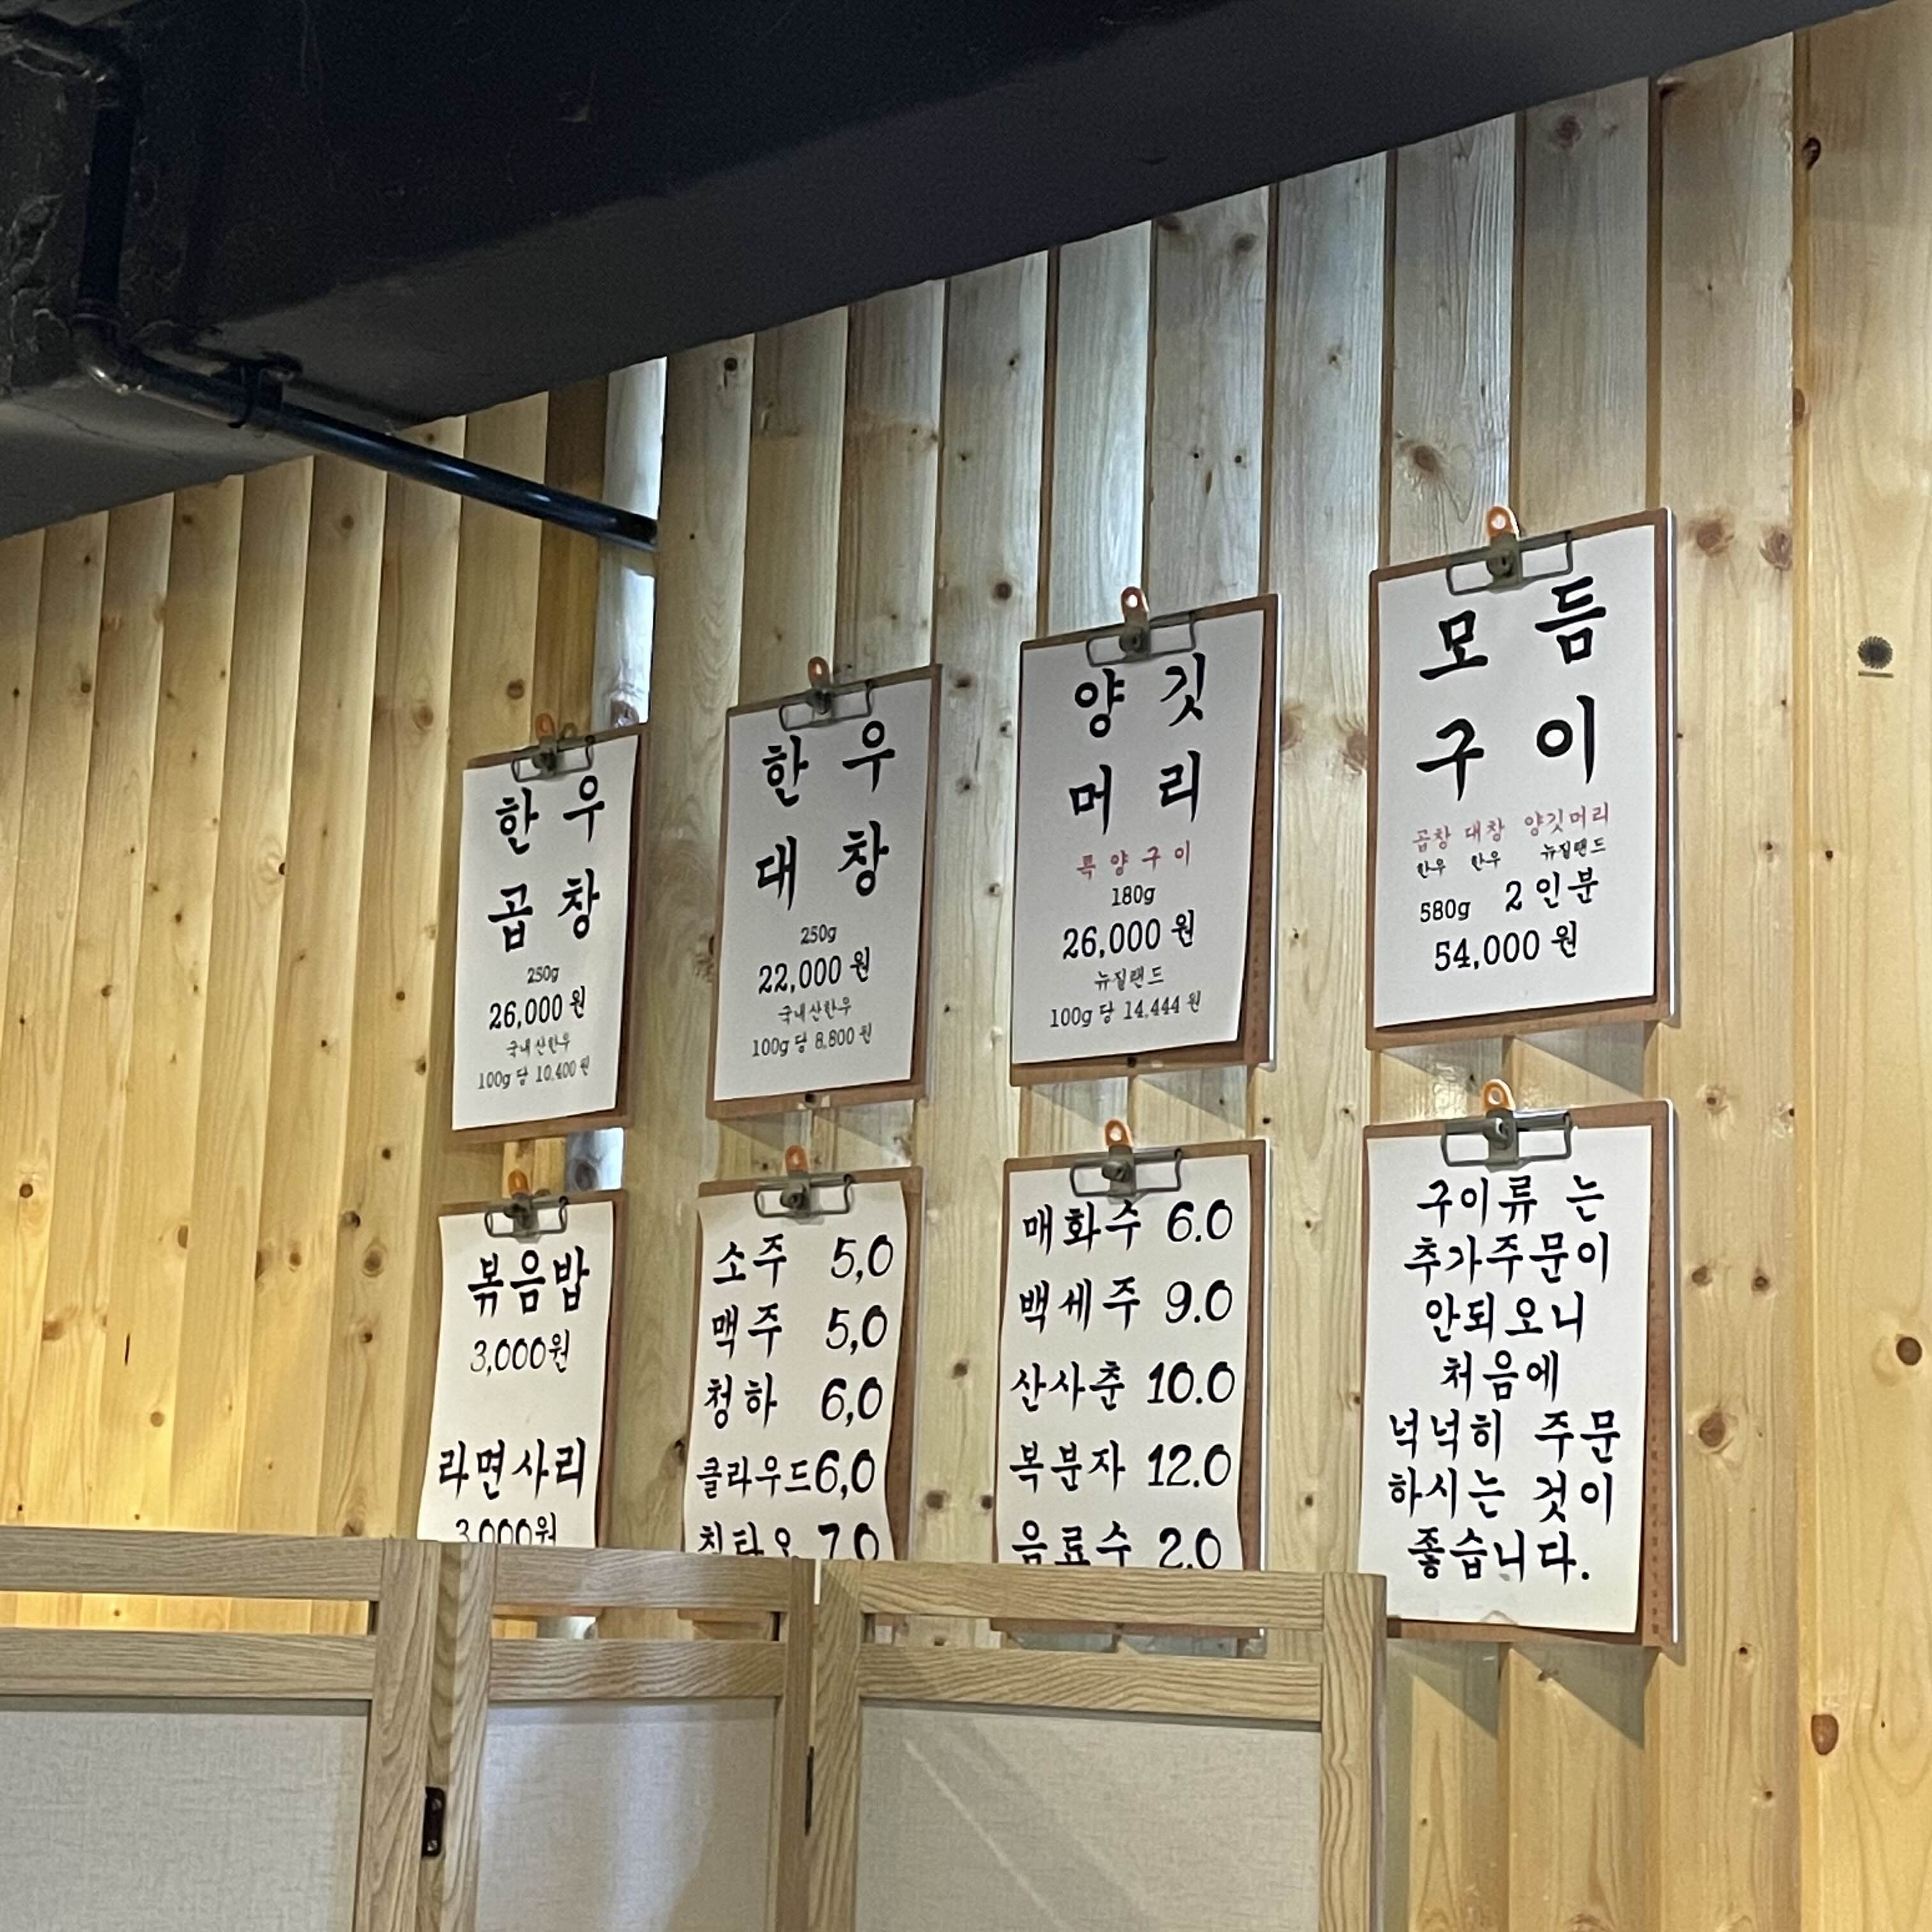 한우
곱창
250g
26,000 원
국내산한우
100g 당 10,400 원
한우
대창
250g
22,000 원
국내산한우
100g 당 8,800 원
양깃
머리
특양구이
180g
26,000 원
뉴질랜드
100g 당 14,444 원
모듬
구이
곱창 대창 양깃머리
한우 한우 뉴질랜드
580g 2인분
54,000 원
볶음밥
3,000원
라면사리
3,000원
소주 5,0
맥주 5,0
청하 6,0
클라우드 6,0
칭타오 7,0
매화수 6.0
백세주 9.0
산사춘 10.0
복분자 12.0
음료수 2.0
구이류 는
추가주문이
안되오니
처음에
넉넉히 주문
하시는 것이
좋습니다.